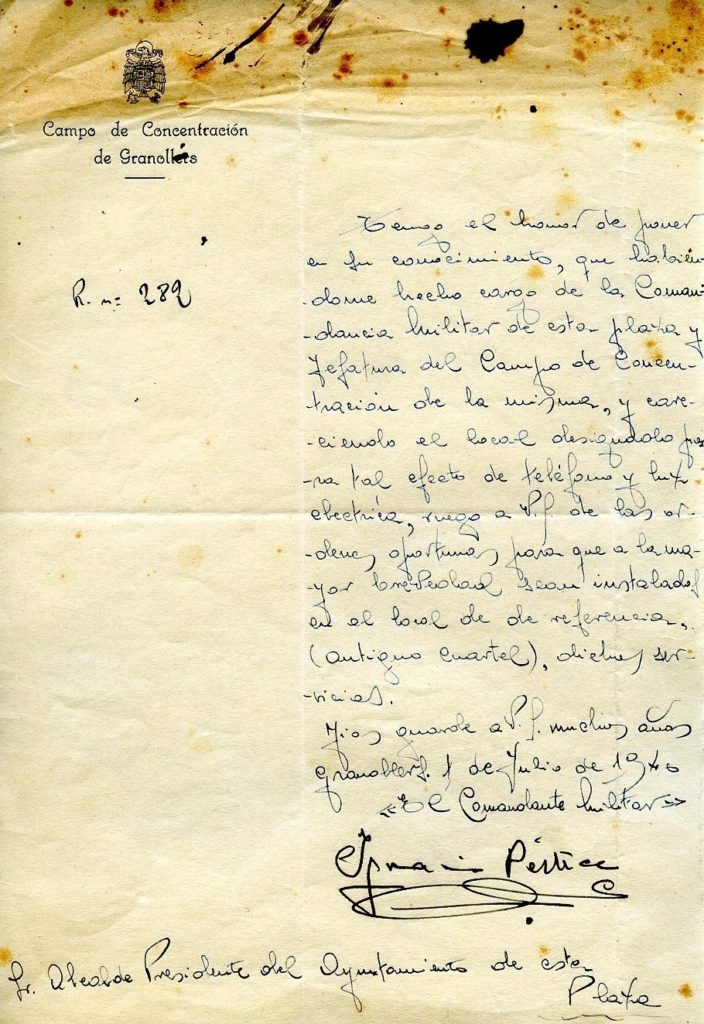 Campo de Concentración
de Granollers
R. nº 282
Tengo el honor de poner
en su conocimiento, que habien-
-dome hecho cargo de la Coman-
-dancia militar de esta plaza y
Jefatura del Campo de Concen-
-tración de la misma, y care-
-ciendo el local designado pa-
-ra tal efecto de teléfono y luz
electrica, ruego a V.S. de las or-
-denes oportunas para que a la ma-
-yor brevedad sean instalados
en el local de de referencia,
(antiguo cuartel), dichos ser-
-vicios.
Dios guarde a V.S. muchos años
Granollers. 1 de Julio de 1940
"El Comandante Militar"
Ignacio
Sr. Alcalde Presidente del Ayuntamiento de esta
Plaza